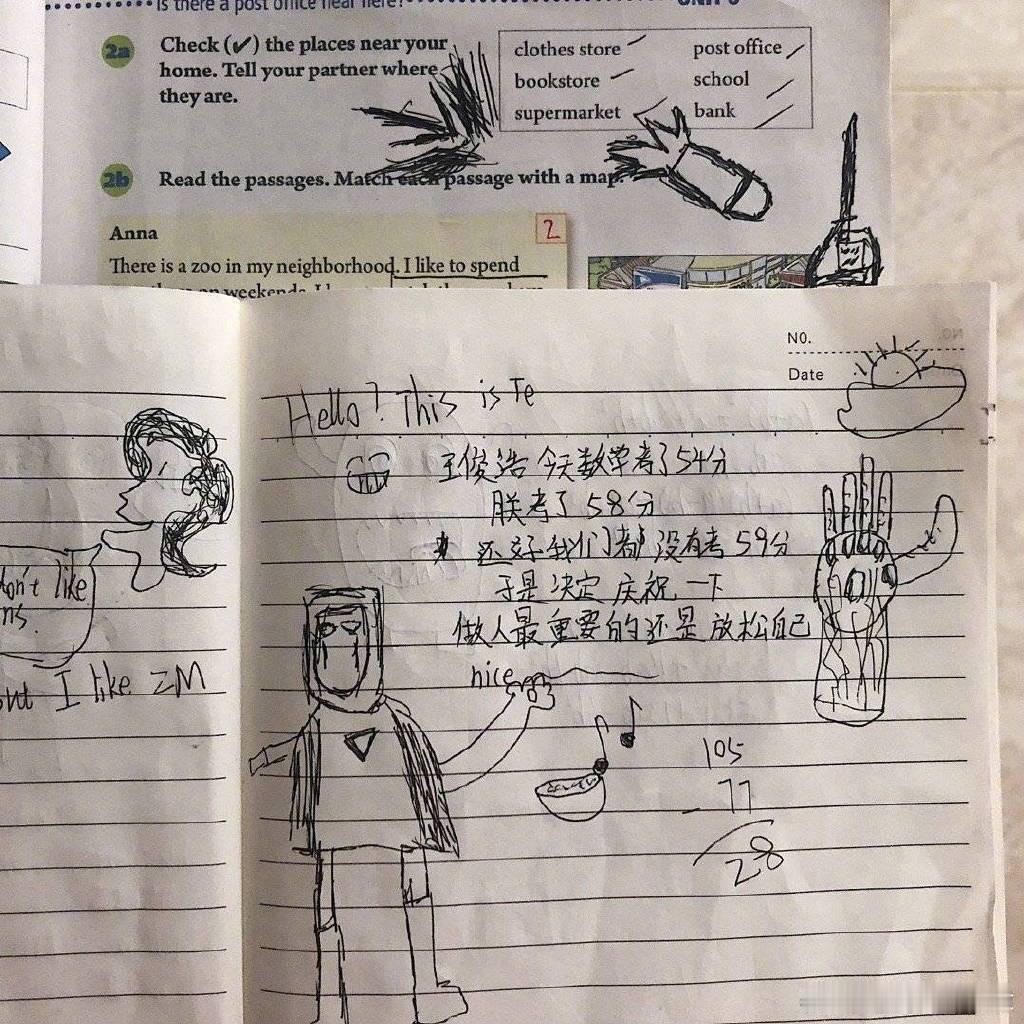 Is there a post office near here?
UNIT 8
2a
Check (✔) the places near your
home. Tell your partner where
they are.
clothes store
post office
bookstore
school
supermarket
bank
2b
Read the passages. Match each passage with a map.
Anna
2
There is a zoo in my neighborhood. I like to spend
on weekends. I
NO.
Date
Hello? This is Te
王俊浩 今天数学考了54分
朕考了 58分
还好我们都没有考 59分
于是决定庆祝一下
做人最重要的还是放松自己
nice
don't like
ns.
I like ZM
105
- 77
28